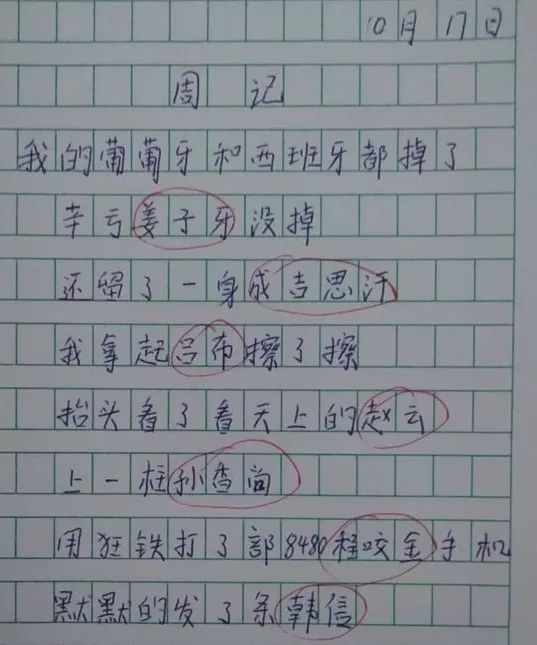 10月17日
周记
我的葡萄牙和西班牙都掉了
辛亏姜子牙没掉
还留了一身成吉思汗
我拿起吕布擦了擦
抬头看了看天上的赵云
上一柱孙香尚
用狂铁打了部8480程咬金手机
默默的发了条韩信